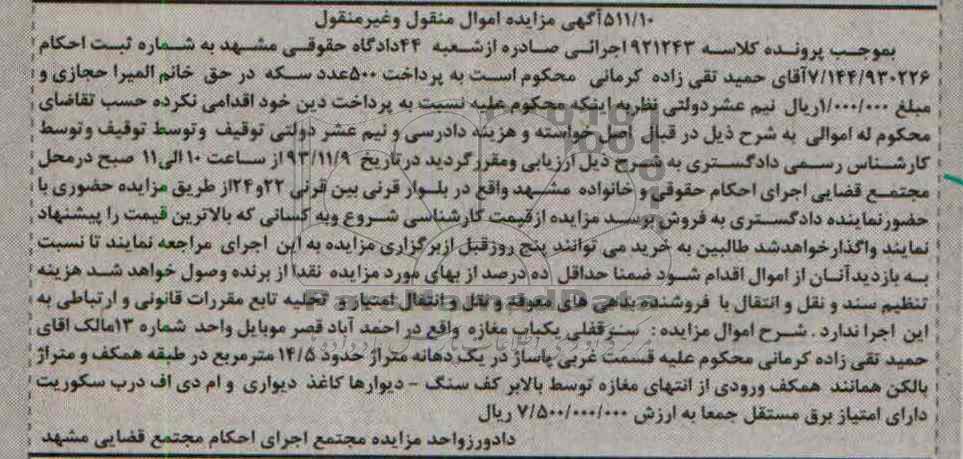 ۵۱۱/۱۰آگهی مزایده اموال منقول وغیرمنقول
بموجب پرونده کلاسه ۹۲۱۲۴۳ اجرائی صادره ازشعبه ۴۴دادگاه حقوقی مشهد به شماره ثبت احکام
۷/۱۴۴/۹۳۰۲۲۶آقای حمید تقی زاده کرمانی محکوم است به پرداخت ۵۰۰عدد سکه در حق خانم المیرا حجازی و
مبلغ ۱/۰۰۰/۰۰۰ریال نیم عشردولتی نظربه اینکه محکوم علیه نسبت به پرداخت دین خود اقدامی نکرده حسب تقاضای
محکوم له اموالی به شرح ذیل در قبال اصل خواسته و هزینه دادرسی و نیم عشر دولتی توقیف وتوسط توقیف وتوسط
کارشناس رسمی دادگستری به شرح ذیل ارزیابی ومقررگردید درتاریخ ۹۳/۱۱/۹ از ساعت ۱۰الی۱۱ صبح درمحل
مجتمع قضایی اجرای احکام حقوقی و خانواده مشهد واقع در بلوار قرنی بین قرنی ۲۲و۲۴از طریق مزایده حضوری با
حضورنماینده دادگستری به فروش برسد مزایده ازقیمت کارشناسی شروع وبه کسانی که بالاترین قیمت را پیشنهاد
نمایند واگذارخواهدشد طالبین به خرید می توانند پنج روزقبل ازبرگزاری مزایده به این اجرای مراجعه نمایند تا نسبت
به بازدیدآنان از اموال اقدام شود ضمنا حداقل ده درصد از بهای مورد مزایده نقدا از برنده وصول خواهد شد هزینه
تنظیم سند و نقل و انتقال با فروشنده بدهی های معوقه و نقل و انتقال امتیاز و تخلیه تابع مقررات قانونی و ارتباطی به
این اجرا ندارد . شرح اموال مزایده : سرقفلی یکباب مغازه واقع در احمد آباد قصر موبایل واحد شماره ۱۳مالک اقای
حمید تقی زاده کرمانی محکوم علیه قسمت غربی پاساژ در یک دهانه متراژ حدود ۱۴/۵ مترمربع در طبقه همکف و متراژ
بالکن همانند همکف ورودی از انتهای مغازه توسط بالابر کف سنگ - دیوارها کاغذ دیواری و ام دی اف درب سکوریت
دارای امتیاز برق مستقل جمعا به ارزش ۷/۵۰۰/۰۰۰/۰۰۰ ریال
دادورزواحد مزایده مجتمع اجرای احکام مجتمع قضایی مشهد